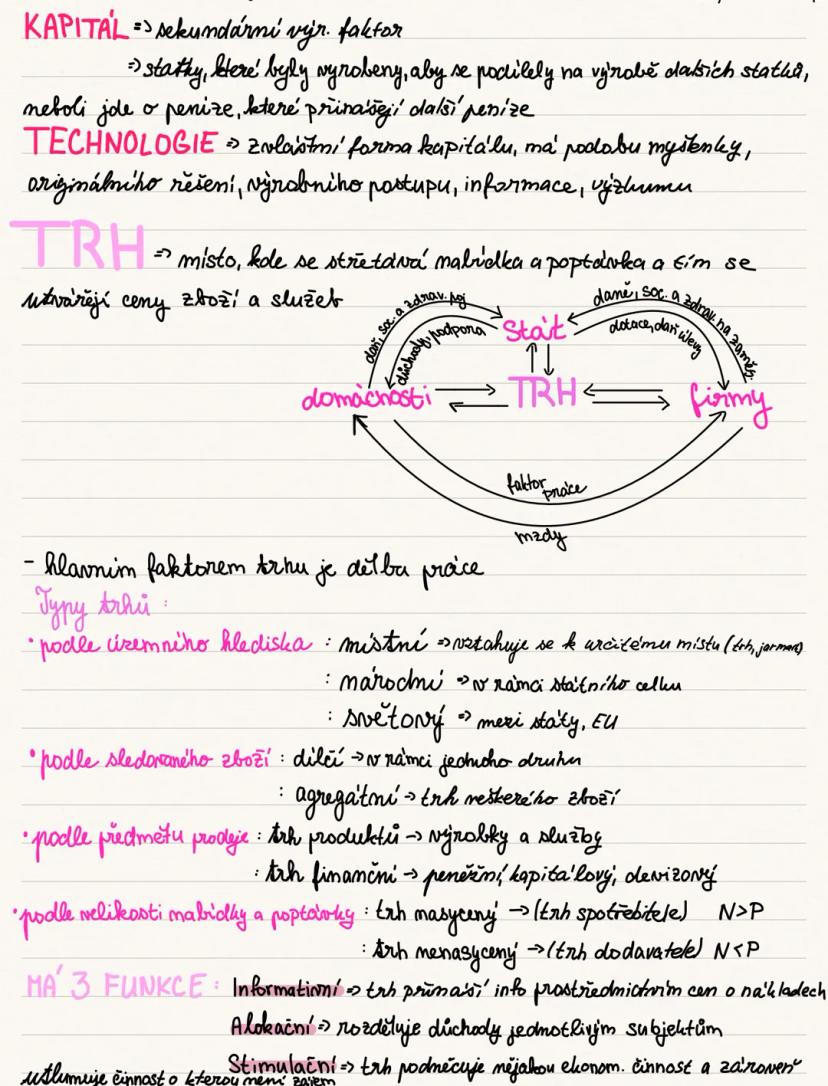 KAPITÁL => sekundární výr. faktor
=> statky, které byly vyrobeny, aby se podílely na výrobě dalších statků,
neboli jde o peníze, které přinášejí další peníze
TECHNOLOGIE => zvláštní forma kapitálu, má podobu myšlenky,
originálního řešení, výrobního postupu, informace, výzkumu
TRH => místo, kde se střetává nabídka a poptávka a tím se
utvářejí ceny zboží a služeb
daň, soc. a zdrav. poj
důchody, podpora
Stát
daně, soc. a zdrav. na zaměs.
dotace, daň úlevy
domácnosti
TRH
firmy
faktor práce
mzdy
- hlavním faktorem trhu je dělba práce
Typy trhů :
• podle územního hlediska : místní => vztahuje se k určitému místu (trh, jarmark)
: národní => v rámci státního celku
: světový => mezi státy, EU
• podle sledovaného zboží : dílčí → v rámci jednoho druhu
: agregátní → trh veškerého zboží
• podle předmětu prodeje : trh produktů → výrobky a služby
: trh finanční → peněžní, kapitálový, devizový
• podle velikosti nabídky a poptávky : trh nasycený → (trh spotřebitele) N>P
: trh nenasycený → (trh dodavatele) N<P
MÁ 3 FUNKCE : Informativní => trh přináší info prostřednictvím cen o nákladech
Alokační => rozděluje důchody jednotlivým subjektům
Stimulační => trh podněcuje nějakou ekonom. činnost a zároveň
utlumuje činnost o kterou není zájem